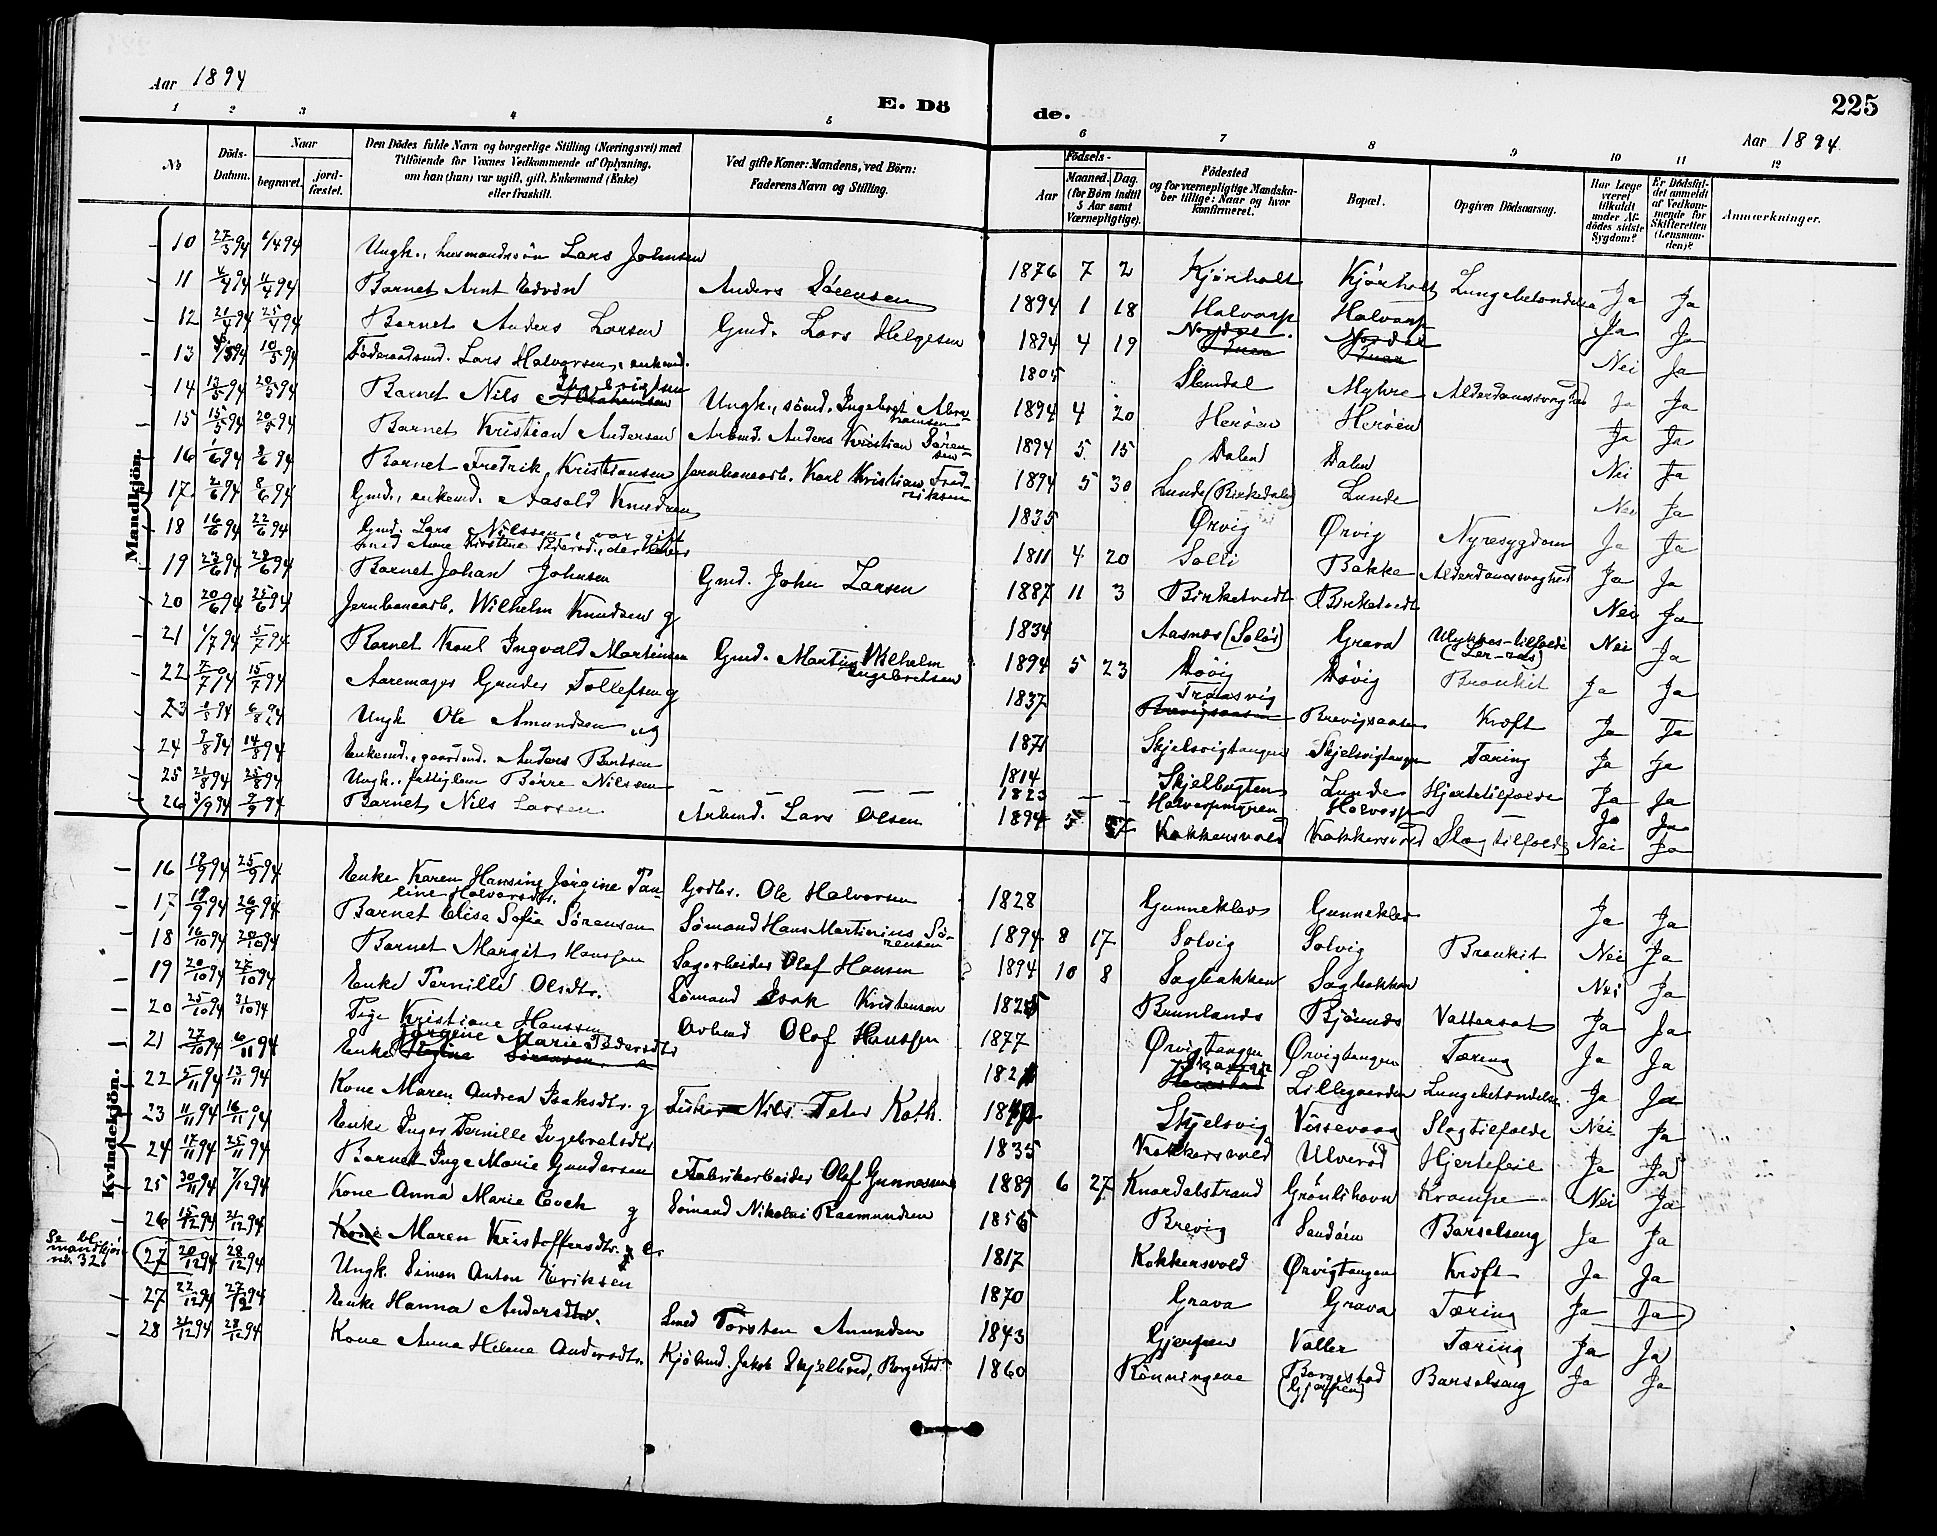 Aar 1894
E. Dö
de.
225
Aar 1894.
1 2 3 4 5 6 7 8 9 10 11 12
No
Döds-Datum.
Naar
begravet.
jord-fæstet.
Den Dödes fulde Navn og borgerlige Stilling (Næringsvei) med
Tilföiende for Voxnes Vedkommende af Oplysning,
om han (hun) var ugift, gift, Enkemand (Enke)
eller fraskilt.
Ved gifte Koner: Mandens, ved Börn:
Faderens Navn og Stilling.
Födsels-
Aar
Maaned. Dag.
(for Börn indtil
5 Aar samt
Værnepligtige).
Födested
og for værnepligtige Mandska-
ber tillige: Naar og hvor
konfirmeret.
Bopæl.
Opgiven Dödsaarsag.
Har Læge
været
tilkaldt
under Af-
dödes sidste
Sygdom?
Er Dödsfal-
det anmeldt
af Vedkom-
mende for
Skifteretten
(Lensman-
den)?
Anmærkninger.
Mandkjön.
10 27/3 94 1/4 94 Ungk., husmandssön Lars Johnsen 1876 7 2 Kjørholt Kjørholt Lungebetændelse Ja Ja
11 4/4 94 11/4 94 Barnet Arnt Edvin Anders Sörensen 1894 1 18 Halvarp Halvarp Ja Ja
12 21/4 94 25/4 94 Barnet Anders Larsen Gmd. Lars Helgesen 1894 4 19 Nei Ja
13 10/5 94 Föderaadsmd. Lars Halvorsen, enkemd. 1805 Slemdal Myhre Alderdomssvaghed Ja Ja
14 13/5 94 20/5 94 Barnet Nils Ingebrigtsen Abrahamsen Ungk., sömd. Ingebregt Abra-
hamsen 1894 4 20 Herøen Herøen Ja Ja
15 15/5 94 20/5 94 Barnet Kristian Andersen Arbmd. Anders Kristian Sören-
sen 1894 5 15 Dalen Dalen Nei Ja
16 1/6 94 3/6 94 Barnet Fredrik Kristiansen Jernbanearb. Karl Kristian Fred-
riksen 1894 5 30 Lunde (Birkedalen) Lunde Nei Ja
17 2/6 94 8/6 94 Gmd., enkemd. Aasold Knudsen 1835 Ørvig Ørvig Nyresygdom Ja Ja
18 16/6 94 22/6 94 Gmd. Lars Nilssen, var gift
med Anne Kirstine Pedersd., der lever 1811 4 20 Solli Bakke Alderdomssvaghed Ja Ja
19 23/6 94 28/6 94 Barnet Johan Johnsen Gmd. John Larsen 1887 11 3 Birketvedt Birketvedt Nei Ja
20 20/6 94 25/6 94 Jernbanearb. Wilhelm Knudsen g 1834 Aasnes (Solør) Grava Ulykkes-tilfælde
(Ler-ras) Nei Ja
21 1/7 94 5/7 94 Barnet Karl Ingvald Martinsen Gmd. Martin Wilhelm
Ingebretsen 1894 5 23 Døvig Døvig Bronkit Ja Ja
22 15/7 94 Aaremager Gunder Tollefsen g 1837 Trosvig Brevigsaasen Brevigsaasen Kræft Ja Ja
23 6/8 94 Ungk Ole Amundsen ug 1871 Skjelsvigtangen Skjelsvigtangen Tæring Ja Ja
24 9/8 94 14/8 94 Enkemd., gaardmd. Anders Bentsen 1814 Skjelbugten Lunde Hjertetilfælde Ja Ja
25 21/8 94 25/8 94 Ungk., fattiglem Börre Nilssen 1823 Halvarpmyren Halvarp Ja Ja
26 3/9 94 9/9 94 Barnet Nils Larsen Arbmd. Lars Olsen 1894 5 Kokkersvold Kokkersvold Slagtilfælde Nei Ja
Kvindekjön.
16 19/9 94 25/9 94 Enke Karen Hansine Jørgine Pau-
line Halvorsdtr. Godtr. Ole Halvorsen 1828 Gunneklev Gunneklev Ja Ja
17 19/9 94 26/9 94 Barnet Elise Sofie Sørensen Sømand Hans Martinius Sø-
rensen 1894 8 17 Solvig Solvig Bronkit Nei Ja
18 16/10 94 20/10 94 Barnet Margit Hanssen Sagarbeider Olaf Hansen 1894 10 8 Sagbakken Sagbakken Nei Ja
19 20/10 94 27/10 94 Enke Pernille Olsdtr. Sømand Isak Kristensen 1825 Brunlanes Bjønnes Vattersot Ja Ja
20 25/10 94 31/10 94 Pige Kristiane Hanssen Arbmd Olaf Hanssen 1877 Ørvigtangen Ørvigtangen Tæring Ja Ja
21 27/10 94 6/11 94 Enke Jørgine Marie Pedersdtr Lillegaarden Lungebetændelse Ja Ja
22 5/11 94 13/11 94 Kone Maren Andrea Isaksdtr. g Fisker Nils Peter Kath. Skjelsvig Vissevaag Slagtilfælde Nei Ja
23 11/11 94 16/11 94 Enke Inger Pernille Ingebretsdtr 1835 Kokkersvold Ulverød Hjertefeil Ja Ja
24 17/11 94 25/11 94 Barnet Inge Marie Gundersen Fabrikarbeider Olaf Gunnessen 1889 6 27 Knardalstrand Grønlihavn Krampe Nei Ja
25 30/11 94 7/12 94 Kone Anna Marie Coch g Sømand Nikolai Rasmundsen 1856 Brevig Sandøen Barselseng Ja Ja
26 15/12 94 21/12 94 Kone Maren Kristoffersdtr. e. 1817 Kokkersvold Ørvigtangen Kræft Ja Ja
Se bl.
mandkjøn
nr. 32
27 20/12 94 28/12 94 Ungk. Simen Anton Eriksen 1870 Grava Grava Tæring Ja Ja
27 22/12 94 27/12 94 Enke Hanna Andersdtr. Smed Torsten Amundsen 1843 Gjerpen Valler Tæring Ja Ja
28 21/12 94 28/12 94 Kone Anna Helene Andersdtr. Kjøbmd. Jakob Skjelbred, Borgestad 1860 Rönningene Borgestad
(Gjerpen) Barselseng Ja Ja